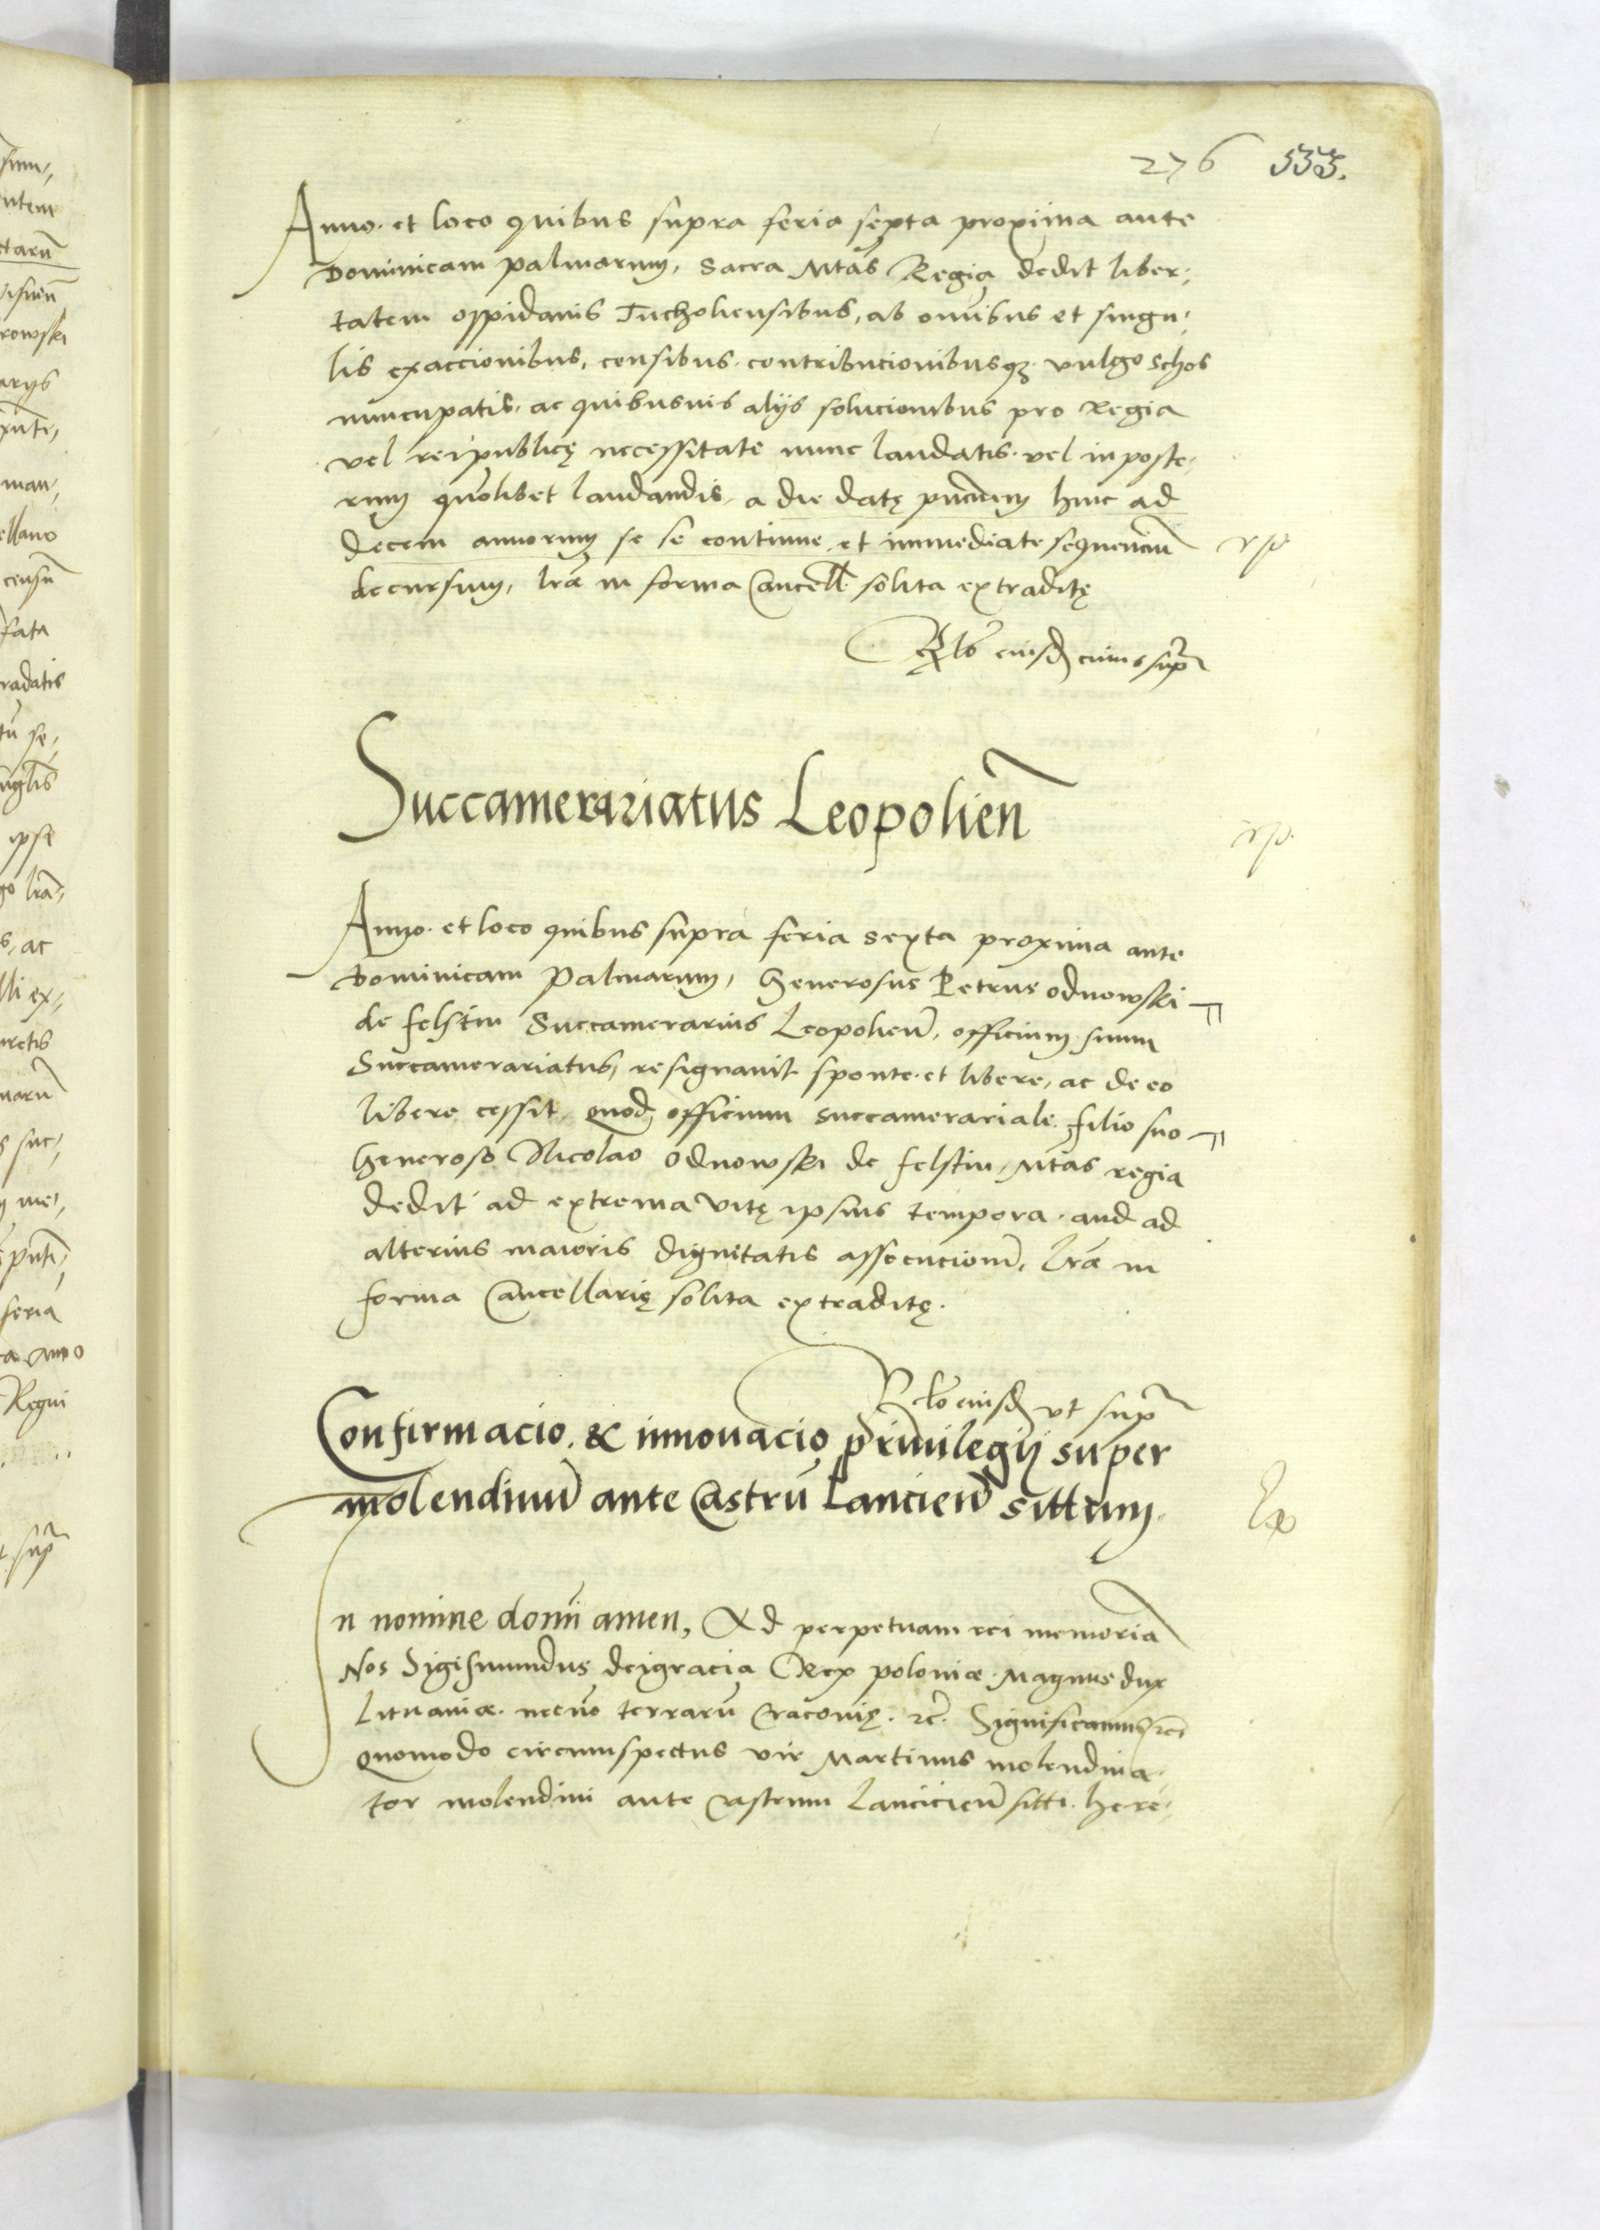 276 555.
Anno. et loco quibus supra feria sexta proxima ante
Dominicam palmarum, Sacra Mtas Regia dedit liber,
tatem oppidanis Tucholiensibus, ab omibus et singu,
lis exaccionibus, censibus. contribucionibusq3. vulgo schos
nuncupatis, ac quibusuis alijs solucionibus pro Regia
vel reipublicę necessitate nunc laudatis. vel in poste,
rum quolibet laudandis, a die datę pntium hinc ad
decem annorum se se continue et immediate sequenciu
decursum, lrae in forma Cancell. solita extraditę
Rlo eiusd cuius supra
Succamerariatus Leopolien
Anno. et loco quibus supra feria sexta proxima ante
Dominicam Palmarum, Generosus Petrus odnowski
de felstin Succamerarius Leopolien, officium suum
Succamerariatus, resignauit sponte et libere, ac de eo
libere cessit, quod officium succamerariale filio suo
Generoso Nicolao odnowski de felstin, Mtas regia
dedit ad extrema vitę ipsius tempora. aud ad
alterius maioris dignitatis assecucionem, lrae in
forma Cancellarię solita extraditę.
Rlo eiusd vt supra
Confirmacio. & innouacio priuilegij super
molendinu ante Castru Lancicien sittum.
In nomine domi amen, Ad perpetuam rei memoria
Nos Sigismundus deigracia Rex poloniæ. Magnus dux
Lituaniæ. necno terraru Cracouię. etc. Significamus etc
Quomodo circumspectus vir Martinus molendina,
tor molendini ante castrum Lancicien sitti. here,